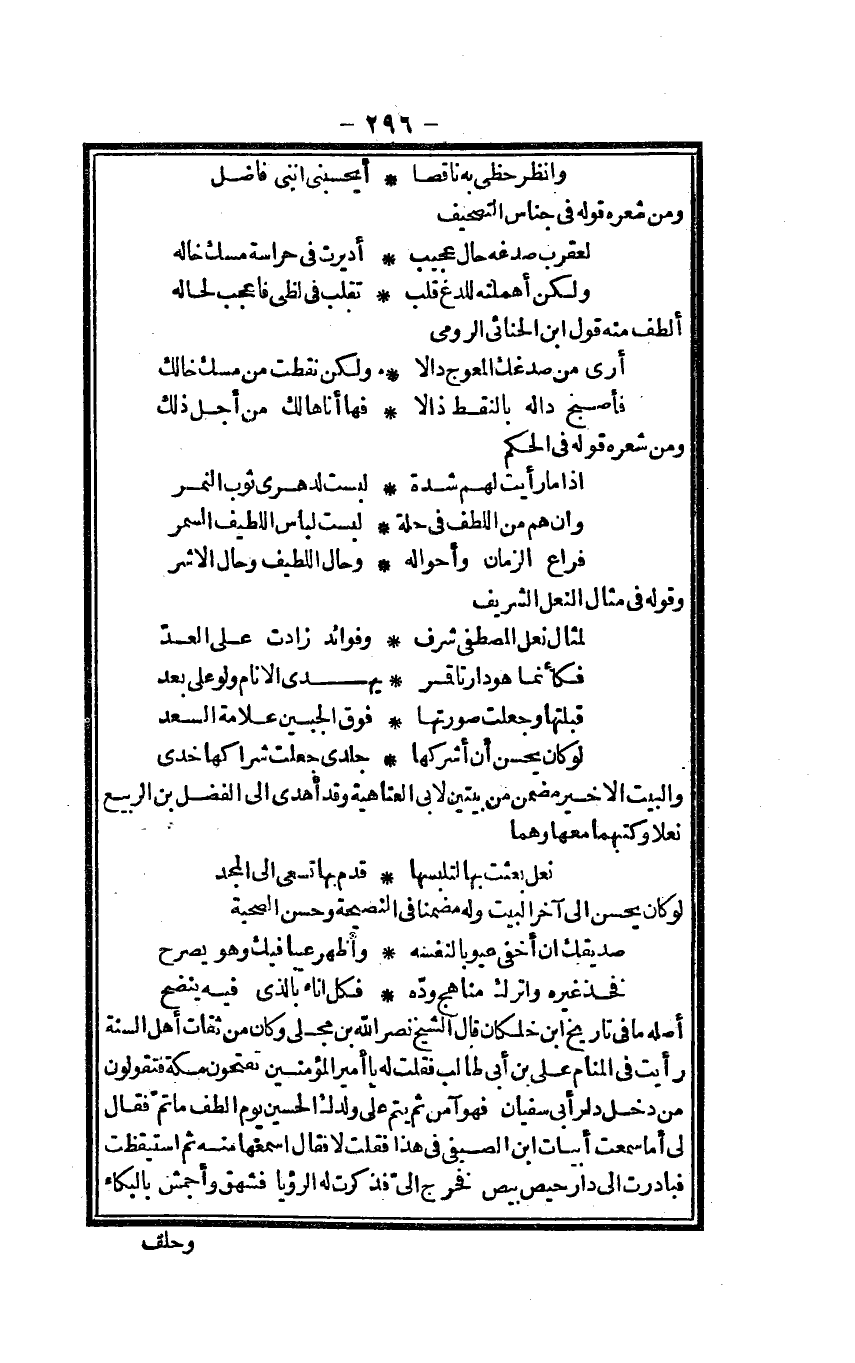 - ٢٩٦ -
وانظر حظى به ناقصا * أيحسبنى اننى فاضل
ومن شعره قوله فى جناس التصحيف
لعقرب صدغه حال عجيب * أديرت فى حراسة مسك خاله
ولكن أهملته للدغ قلب * تقلب فى لظى فاعجب لحاله
ألطف منه قول ابن الحنائى الرومى
أرى من صدغك المعوج دالا * ولكن نقطت من مسك خالك
فأصبح داله بالنقط ذالا * فها أنا هالك من أجل ذلك
ومن شعره قوله فى الحكم
اذا ما رأيت لهم شدة * لبست لدهرى ثوب النمر
وان هم من اللطف فى حلة * لبست لباس اللطيف السمر
فراع الزمان وأحواله * وحال اللطيف وحال الاشر
وقوله فى مثال النعل الشريف
لمثال نعل المصطفى شرف * وفوائد زادت على العدّ
فكأنما هو دارنا قمر * يهدى الانام ولو على بعد
قبلتها وجعلت صورتها * فوق الجبين علامة السعد
لو كان يحسن أن أشركها * جلدى جعلت شراكها خدى
والبيت الاخير مضمن من بيتين لابى العتاهية وقد أهدى الى الفضل بن الربيع
نعلا وكتبهما معها وهما
نعل بعثت بها لتلبسها * قدم بها تسعى الى المجد
لو كان يحسن الى آخر البيت وله مضمنا فى النصيحة وحسن الصحبة
صديقك ان أخفى عيوبا لنفسه * وأظهر عيبا فيك وهو يصرح
فخذ غيره واترك مناهج ودّه * فكل اناء بالذى فيه ينضح
أصله ما فى تاريخ ابن خلكان قال الشيخ نصر الله بن مجلى وكان من ثقات أهل السنة
رأيت فى المنام على بن أبى طالب فقلت له يا أمير المؤمنين تفتحون مكة فتقولون
من دخل دار أبى سفيان فهو آمن ثم يتم على ولدك الحسين يوم الطف ما تم فقال
لى أما سمعت أبيات ابن الصيفى فى هذا فقلت لا فقال اسمعها منه ثم استيقظت
فبادرت الى دار حيص بيص فخرج الىّ فذكرت له الرؤيا فشهق وأجهش بالبكاء
وحلف